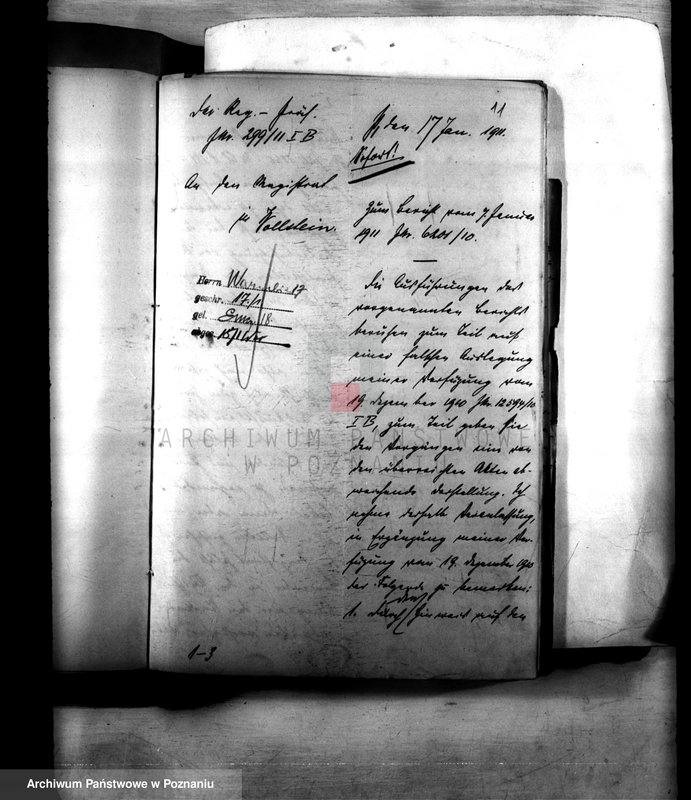 11
Der Reg.-Präs.
JNr. 299/11 I B
den 17 Jan. 1911.
Sofort!
An den Magistrat
in Wollstein.
Zum Bericht vom 7. Januar
1911 JNr. 6201/10.
Die Ausführungen des
vorgenannten Berichts
beruhen zum Teil auf
einer falschen Auslegung
meiner Verfügung vom
19. Dezember 1910 JNr. 12594/10
I B, zum Teil geben sie
den Vorgängen eine von
den überreichten Akten ab-
weichende Darstellung. Ich
nehme deshalb Veranlassung,
in Ergänzung meiner Ver-
fügung vom 19. Dezember 1910
das Folgende zu bemerken:
1. Durch den Hinweis auf den
Herrn
geschr. 17/1
gel. 18.
abges.
1-3
ARCHIWUM PAŃSTWOWE
W POZNANIU
Archiwum Państwowe w Poznaniu